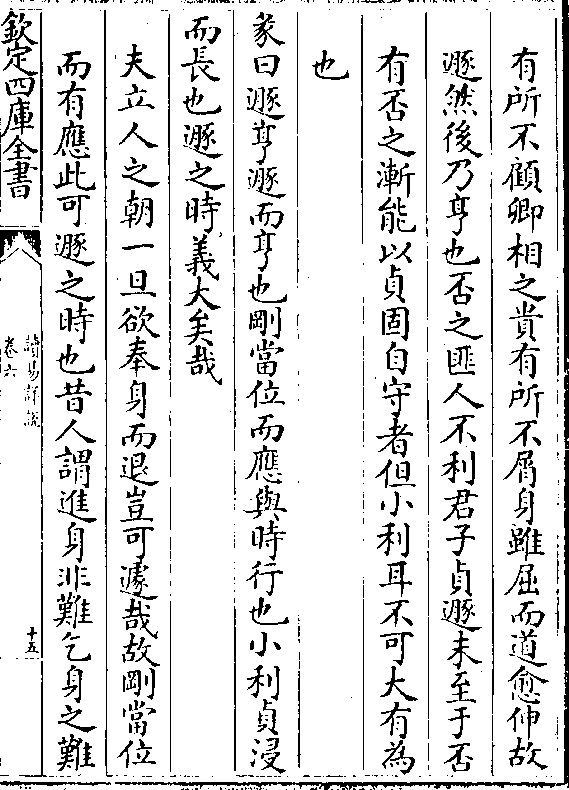 有所不顧卿相之貴有所不屑身雖屈而道愈伸故
遯然後乃亨也否之匪人不利君子貞遯未至于否
有否之漸能以貞固自守者但小利耳不可大有為
也
彖曰遯亨遯而亨也剛當位而應與時行也小利貞浸
而長也遯之時義大矣哉
夫立人之朝一旦欲奉身而退豈可遽哉故剛當位
而有應此可遯之時也昔人謂進身非難乞身之難
欽定四庫全書
讀易詳說
卷六
十五